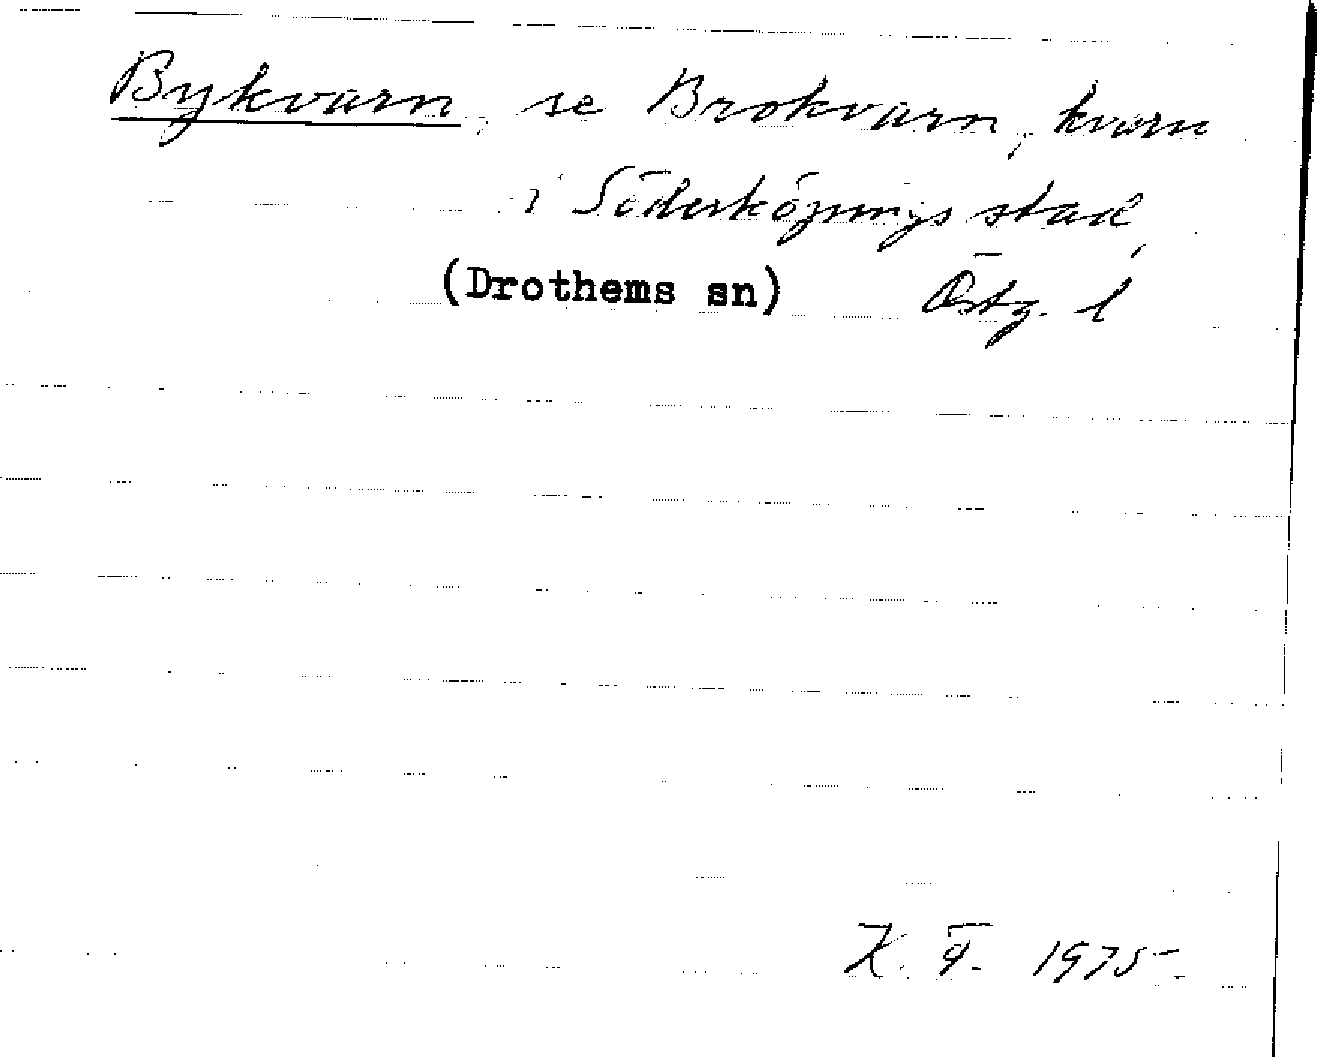 Bykvarn, se Brokvarn, kvarn
i Söderköpings stad,
(Drothems sn) Östg. l
K. F. 1975